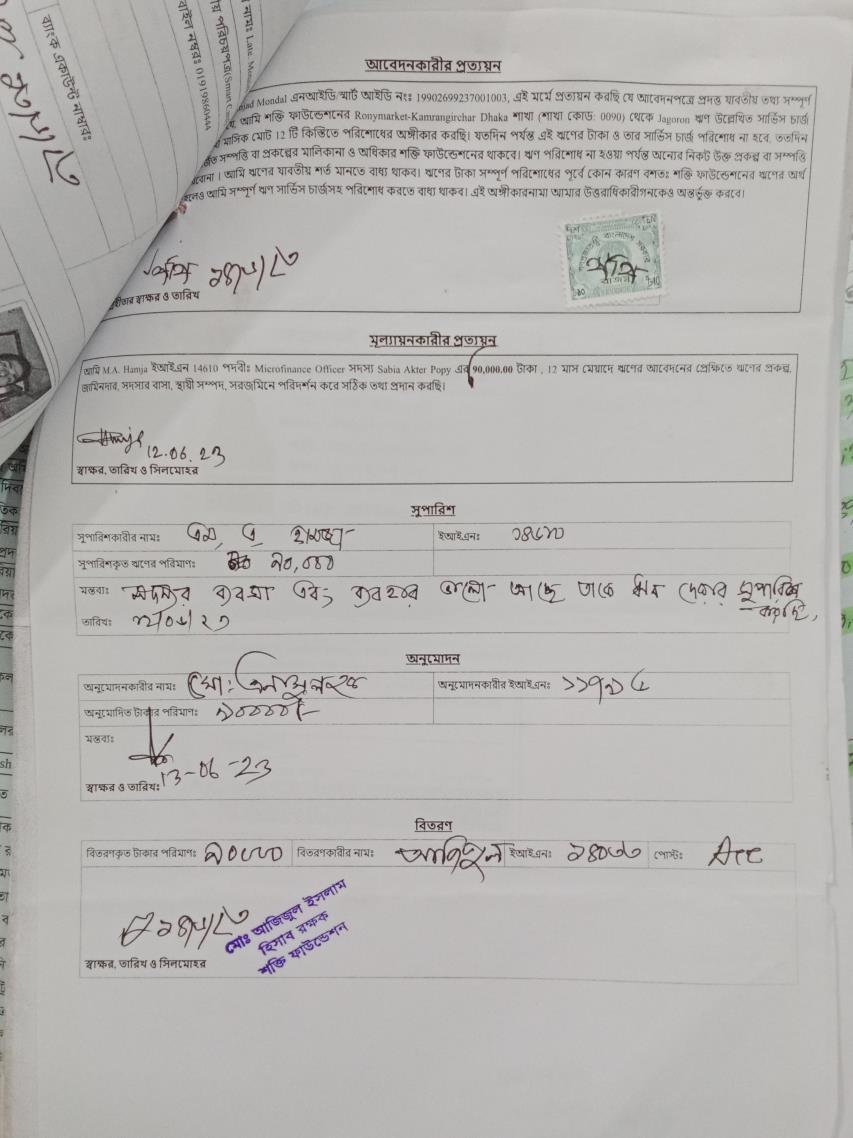 ব্যাংক একাউন্ট নাম্বার:
নাম: Late
য় পরিচয়পত্র(Smart
বাইল নম্বরঃ 01919860444
আবেদনকারীর প্রত্যয়ন
Mondal এনআইডি/স্মার্ট আইডি নংঃ 19902699237001003, এই মর্মে প্রত্যয়ন করছি যে আবেদনপত্রে প্রদত্ত যাবতীয় তথ্য সম্পূর্ণ
আমি শক্তি ফাউন্ডেশনের Ronymarket-Kamrangirchar Dhaka শাখা (শাখা কোড: 0090) থেকে Jagoron ঋণ উল্লেখিত সার্ভিস চার্জ
মাসিক মোট 12 টি কিস্তিতে পরিশোধের অঙ্গীকার করছি। যতদিন পর্যন্ত এই ঋণের টাকা ও তার সার্ভিস চার্জ পরিশোধ না হবে, ততদিন
সম্পত্তি বা প্রকল্পের মালিকানা ও অধিকার শক্তি ফাউন্ডেশনের থাকবে। ঋণ পরিশোধ না হওয়া পর্যন্ত অন্যের নিকট উক্ত প্রকল্প বা সম্পত্তি
আমি ঋণের যাবতীয় শর্ত মানতে বাধ্য থাকব। ঋণের টাকা সম্পূর্ণ পরিশোধের পূর্বে কোন কারণ বশতঃ শক্তি ফাউন্ডেশনের ঋণের অর্থ
হলেও আমি সম্পূর্ণ ঋণ সার্ভিস চার্জসহ পরিশোধ করতে বাধ্য থাকব। এই অঙ্গীকারনামা আমার উত্তরাধিকারীগনকেও অন্তর্ভুক্ত করবে।
পপি
পপি
স্বাক্ষর ও তারিখ
মূল্যায়নকারীর প্রত্যয়ন
আমি M.A. Hamja ইআইএন 14610 পদবীঃ Microfinance Officer সদস্য Sabia Akter Popy এর 90,000.00 টাকা , 12 মাস মেয়াদে ঋণের আবেদনের প্রেক্ষিতে ঋণের প্রকল্প,
জামিনদার, সদস্যর বাসা, স্থায়ী সম্পদ, সরজমিনে পরিদর্শন করে সঠিক তথ্য প্রদান করছি।
Hamja 12.06.23
স্বাক্ষর, তারিখ ও সিলমোহর
সুপারিশ
সুপারিশকারীর নাম: এম, এ হামজা ইআইএন: ১৪৬১০
সুপারিশকৃত ঋণের পরিমাণ: ৯০,০০০
মন্তব্য: সদস্যর ব্যবসা এবং ব্যবহার ভালো আছে তাকে ঋণ দেওয়ার সুপারিশ
করছি,
তারিখ: ১২/০৬/২৩
অনুমোদন
অনুমোদনকারীর নাম: মো: অনুমোদনকারীর ইআইএন:
অনুমোদিত টাকার পরিমাণ: ৯০০০০/-
মন্তব্য:
স্বাক্ষর ও তারিখ: 13-06-23
বিতরণ
বিতরণকৃত টাকার পরিমাণ: ৯০০০০ বিতরণকারীর নাম: আজিজুল ইআইএন: পোস্ট: Acc
মোঃ আজিজুল ইসলাম
হিসাব রক্ষক
শক্তি ফাউন্ডেশন
স্বাক্ষর, তারিখ ও সিলমোহর